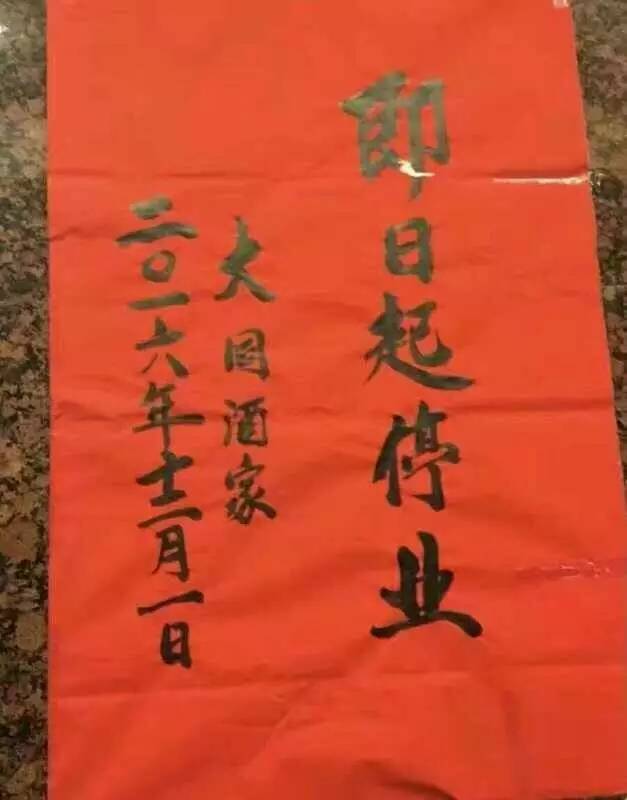 即日起停业
大図酒家
二〇一六年十二月一日